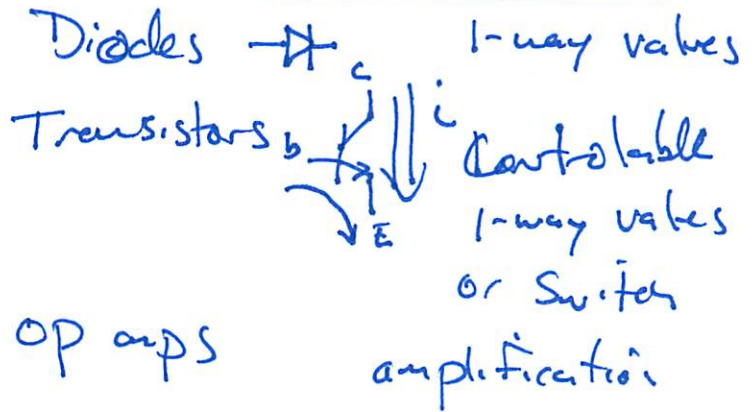 Diodes 1-way valves
c
Transistors b i Controlable
E 1-way valves
or Switch
op amps amplification